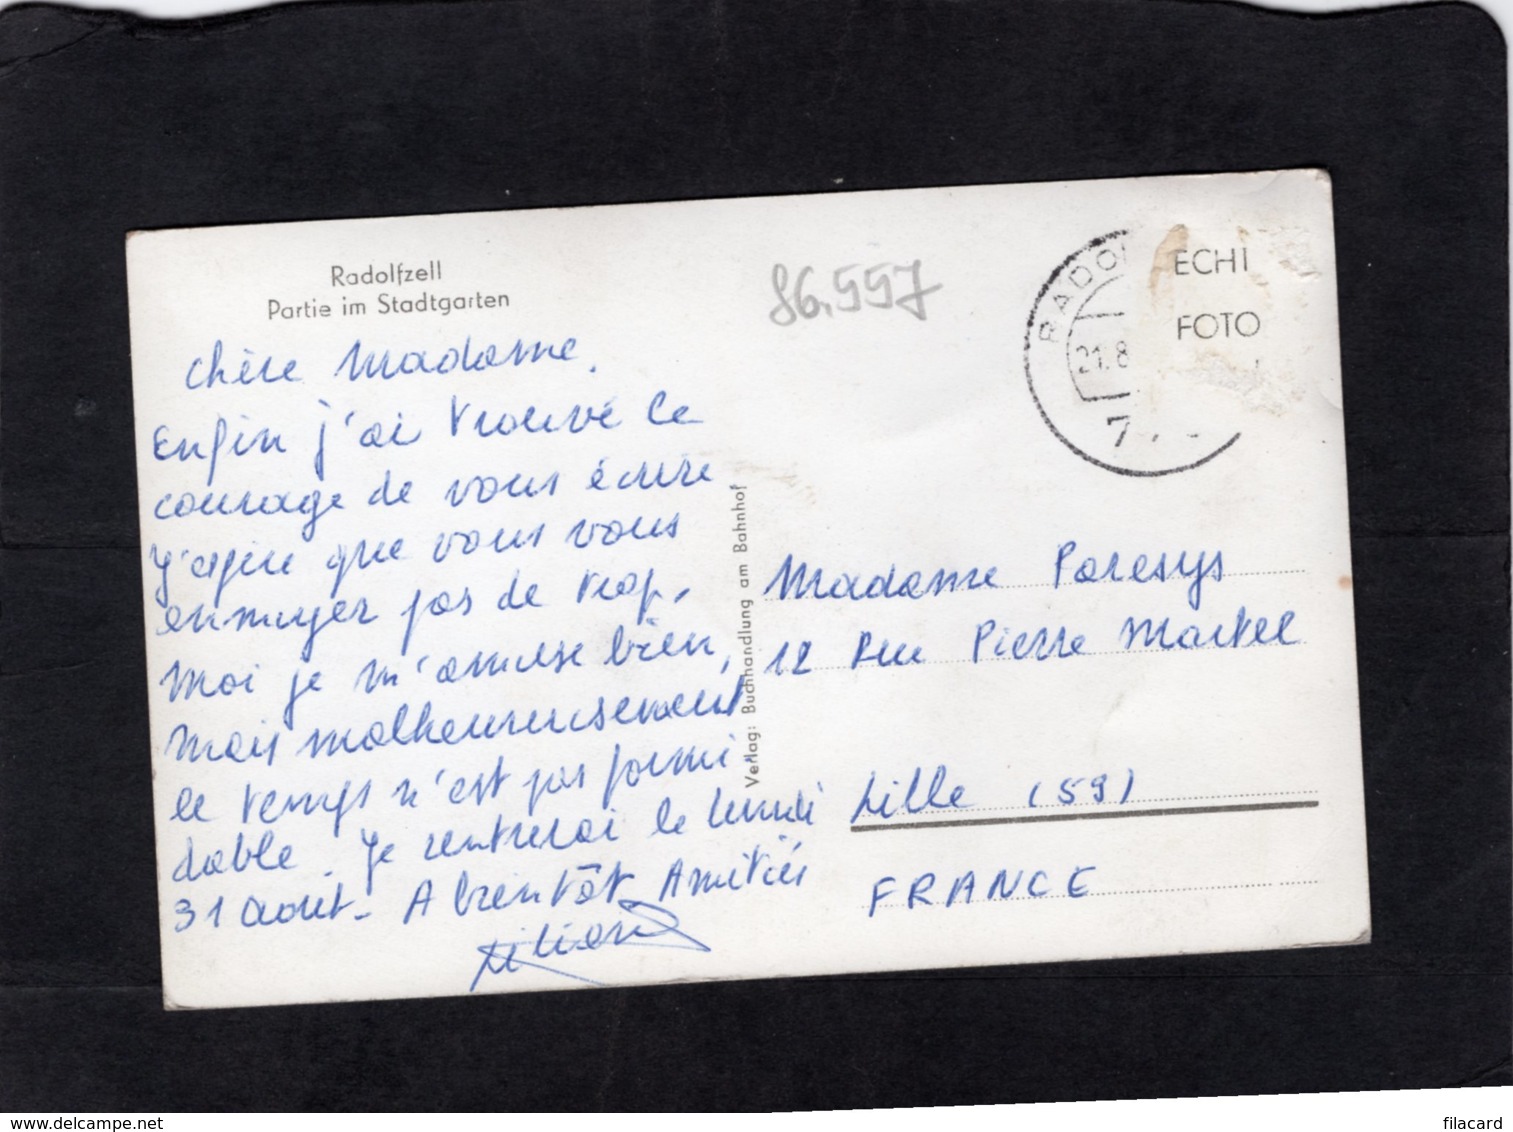 Radolfzell
Partie im Stadtgarten
86.557
RADO
21.8
7
ECHT
FOTO
Chère Madame.
Enfin j'ai trouvé le
courage de vous écrire
J'espère que vous vous
ennuyer pas de trop.
Moi je m'amuse bien,
mais malheureusement
le temps n'est pas formi
dable. Je rentrerai le lundi
31 août. A bientôt Amitiés
Liliane
Verlag: Buchhandlung am Bahnhof
Madame Paresys
12 Rue Pierre Martel
Lille (59)
FRANCE
www.delcampe.net
filacard